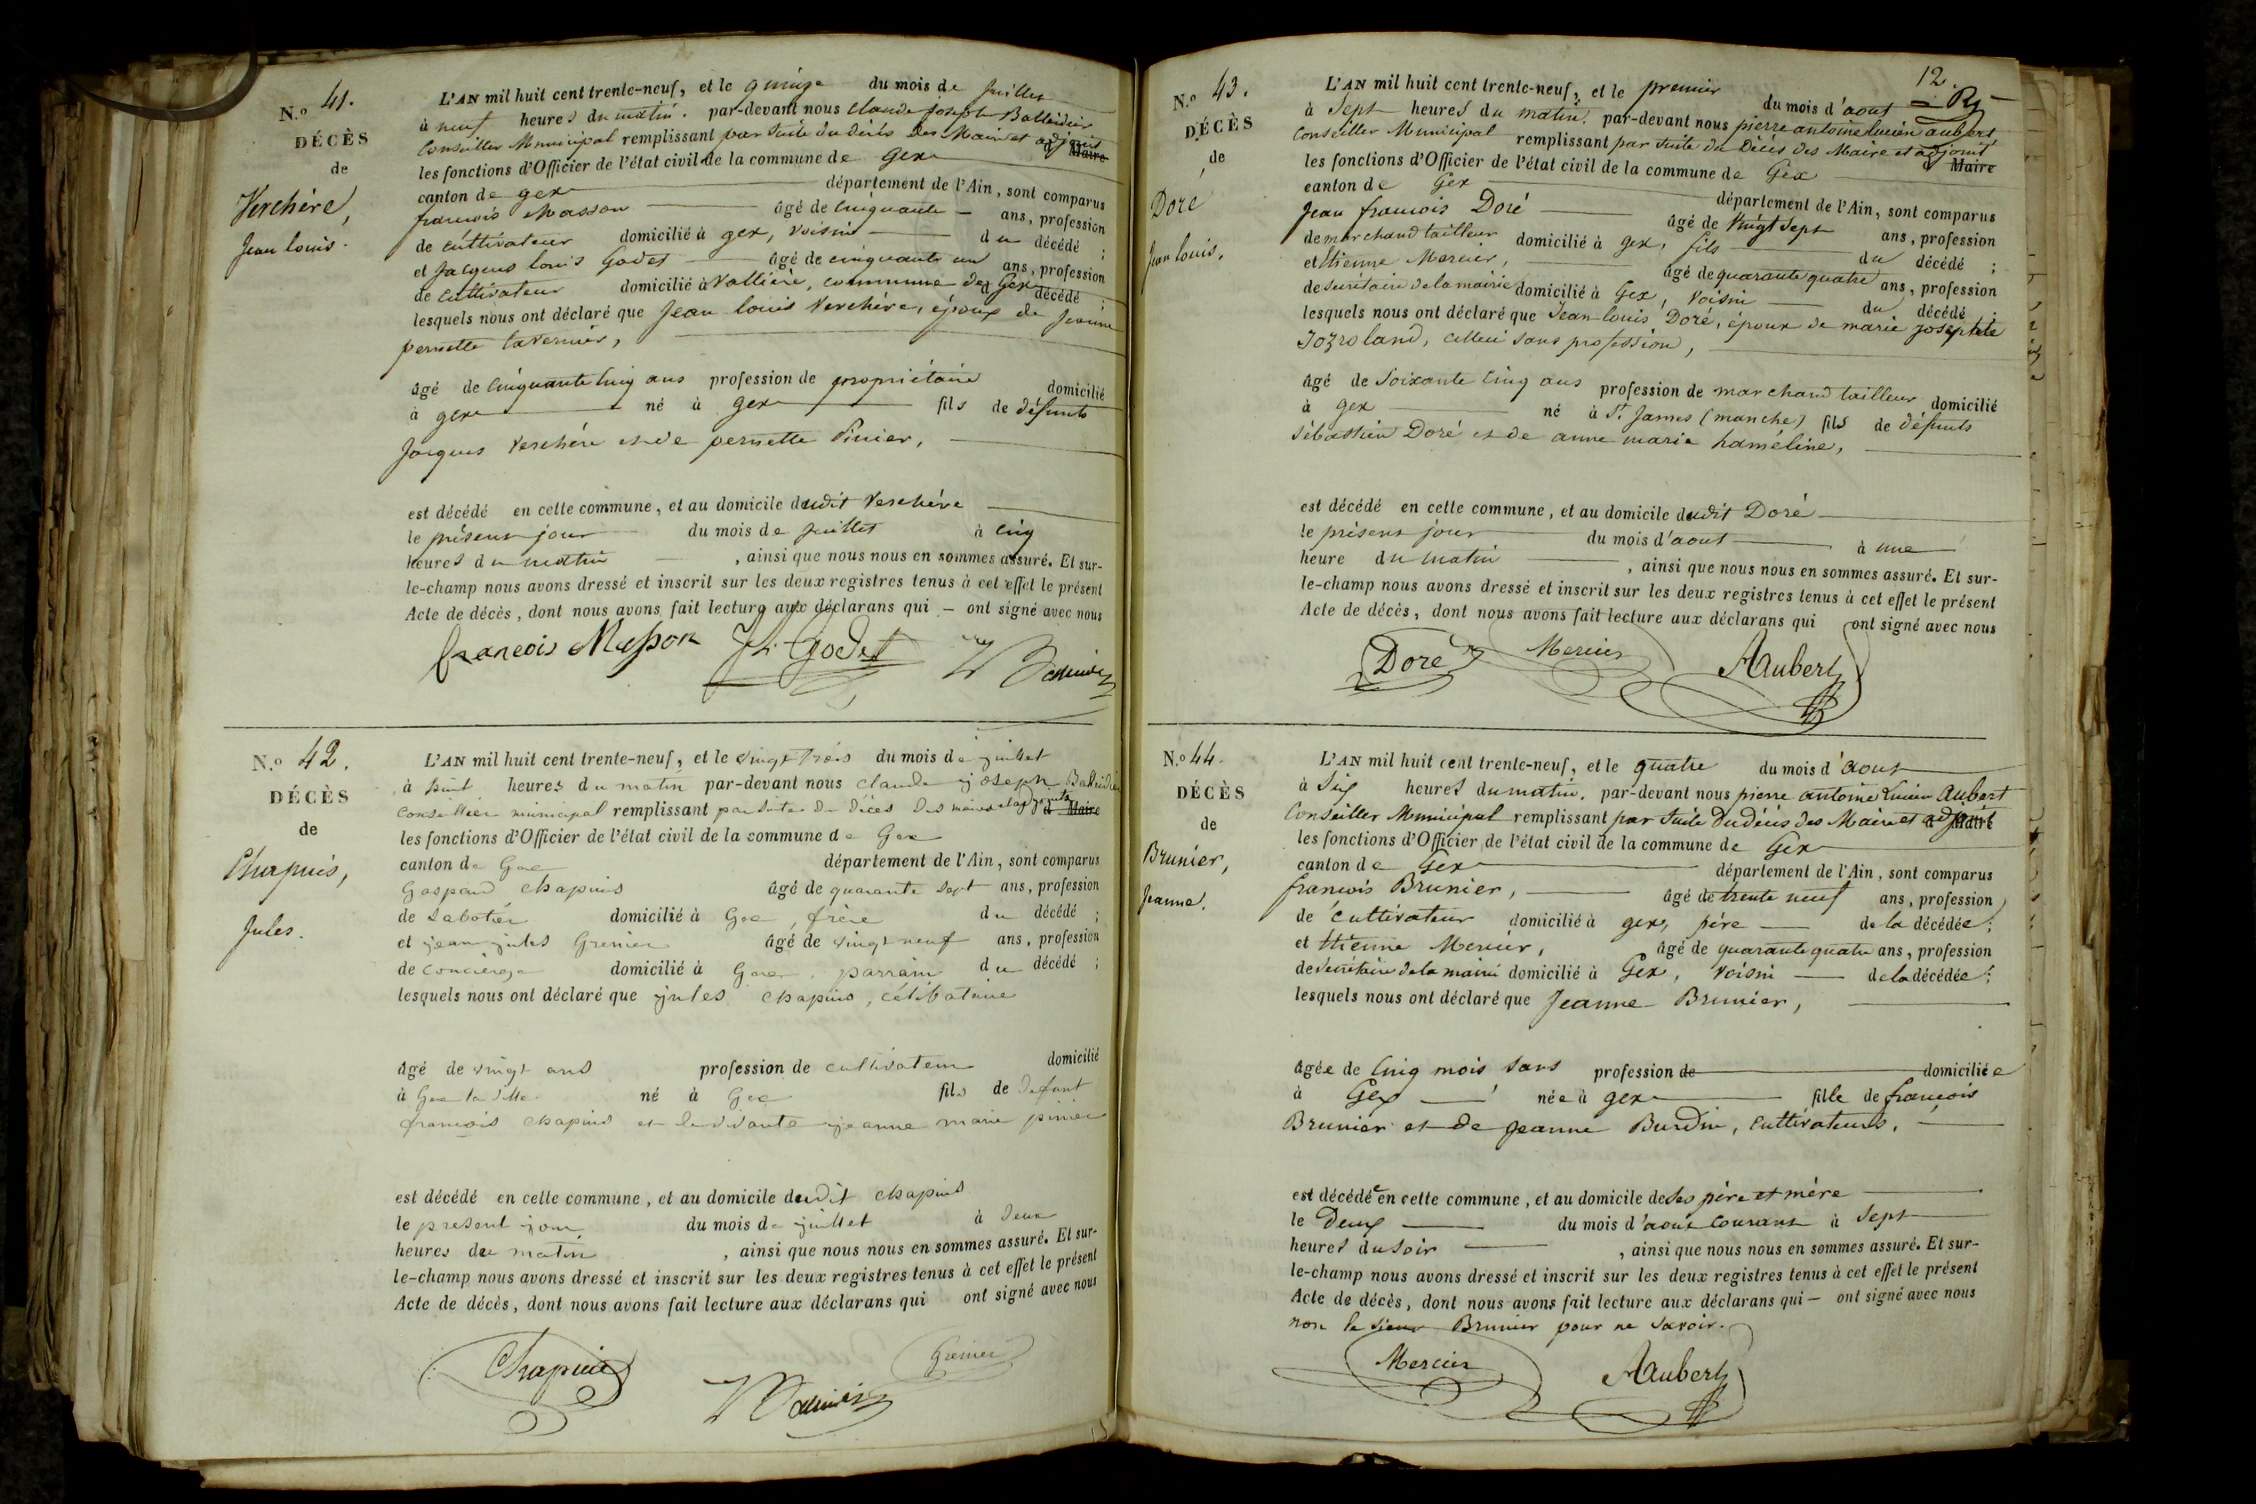 N.o 41.
DÉCÈS
de
Verchère,
Jean louis.
L'AN mil huit cent trente-neuf, et le quinze du mois de Juillet
à neuf heures du matin. par-devant nous Claude Joseph
Conseiller Municipal remplissant par suite du décès des Maire et adjoint Maire
les fonctions d'Officier de l'état civil de la commune de Gex
canton de gex département de l'Ain, sont comparus
françois Masson âgé de Cinquante ans, profession
de cultivateur domicilié à gex, voisin du décédé ;
et Jacques louis Godet âgé de cinquante un ans, profession
de Cultivateur domicilié à Vallière, commune de Gex décédé ;
lesquels nous ont déclaré que Jean louis Verchère, époux de Jeanne
pernette tavernier,
âgé de Cinquante Cinq ans profession de propriétaire domicilié
à gex né à Gex fils de défunts
Jacques Verchère et de pernette Pinier,
est décédé en cette commune, et au domicile dudit Verchère
le présent jour du mois de Juillet à Cinq
heures du matin , ainsi que nous nous en sommes assuré. Et sur-
le-champ nous avons dressé et inscrit sur les deux registres tenus à cet effet le présent
Acte de décès, dont nous avons fait lecture aux déclarans qui – ont signé avec nous
françois Masson JL Godet
N.o 42.
DÉCÈS
de
Chapuis,
Jules.
L'AN mil huit cent trente-neuf, et le vingt trois du mois de juillet
à huit heures du matin par-devant nous claude joseph
Conseiller municipal remplissant par suite du décès des maire et adjoints Maire
les fonctions d'Officier de l'état civil de la commune de Gex
canton de Gex département de l'Ain, sont comparus
Gaspard chapuis âgé de quarante sept ans, profession
de sabotier domicilié à Gex, frère du décédé ;
et jean jules Grenier âgé de vingt neuf ans, profession
de concierge domicilié à Gex, parrain du décédé ;
lesquels nous ont déclaré que jules chapuis, célibataire
âgé de vingt ans profession de cultivateur domicilié
à Gex la ville né à Gex fils de defunt
françois chapuis et de vivante jeanne marie pinier
est décédé en cette commune, et au domicile dudit chapuis
le présent jour du mois de juillet à deux
heures du matin , ainsi que nous nous en sommes assuré. Et sur-
le-champ nous avons dressé et inscrit sur les deux registres tenus à cet effet le présent
Acte de décès, dont nous avons fait lecture aux déclarans qui ont signé avec nous
Chapuis Grenier
12.
N.o 43.
DÉCÈS
de
Doré
Jean louis,
L'AN mil huit cent trente-neuf, et le premier du mois d'aout
à Sept heures du matin. par-devant nous pierre antoine Lucien aubert
Conseiller Municipal remplissant par suite du Décès des Maire et adjoint Maire
les fonctions d'Officier de l'état civil de la commune de Gex
canton de Gex département de l'Ain, sont comparus
Jean françois Doré âgé de Vingt Sept ans, profession
de marchand tailleur domicilié à gex, fils du décédé ;
et Etienne Mercier, âgé de quarante quatre ans, profession
de secrétaire de la mairie domicilié à Gex, voisin du décédé ;
lesquels nous ont déclaré que Jean-louis Doré, époux de marie josephte
Jozroland, celleci sans profession,
âgé de Soixante Cinq ans profession de marchand tailleur domicilié
à gex né à St. James (manche) fils de défunts
Sébastien Doré et de anne marie haméline,
est décédé en cette commune, et au domicile dudit Doré
le présent jour du mois d'aout à une
heure du matin , ainsi que nous nous en sommes assuré. Et sur-
le-champ nous avons dressé et inscrit sur les deux registres tenus à cet effet le présent
Acte de décès, dont nous avons fait lecture aux déclarans qui ont signé avec nous
Doré Mercier Aubert
N.o 44.
DÉCÈS
de
Brunier,
Jeanne.
L'AN mil huit cent trente-neuf, et le quatre du mois d'aout
à Six heures du matin. par-devant nous pierre antoine Lucien Aubert
Conseiller Municipal remplissant par suite du décès des Maire et adjoint Maire
les fonctions d'Officier de l'état civil de la commune de Gex
canton de Gex département de l'Ain, sont comparus
françois Brunier, âgé de trente neuf ans, profession
de cultivateur domicilié à gex, père de la décédée ;
et Etienne Mercier, âgé de quarante quatre ans, profession
de secrétaire de la mairie domicilié à Gex, voisin de la décédée ;
lesquels nous ont déclaré que Jeanne Brunier,
âgée de Cinq mois sans profession de domiciliée
à Gex née à gex fille de françois
Brunier et de Jeanne Burdin, cultivateurs.
est décédée en cette commune, et au domicile de ses père et mère
le Deux du mois d'aout Courant à Sept
heures du soir , ainsi que nous nous en sommes assuré. Et sur-
le-champ nous avons dressé et inscrit sur les deux registres tenus à cet effet le présent
Acte de décès, dont nous avons fait lecture aux déclarans qui – ont signé avec nous
non le sieur Brunier pour ne savoir.
Mercier Aubert